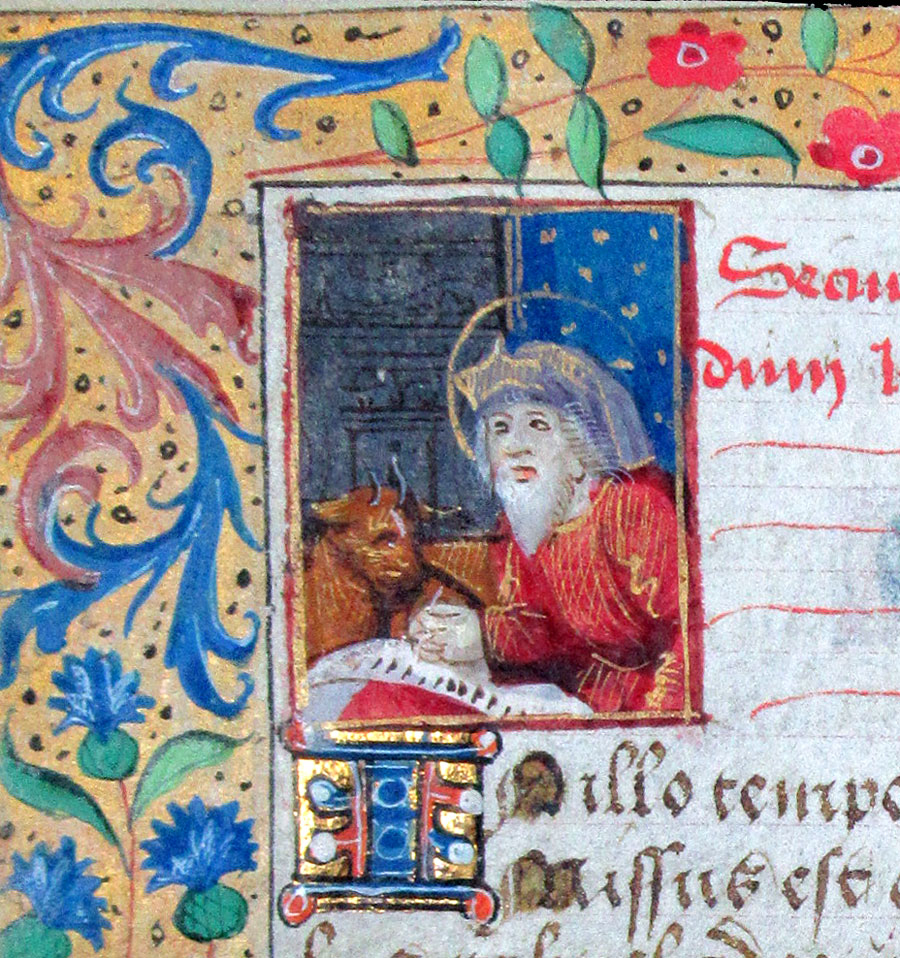 Secun
dum
IN illo tempo
Missus est